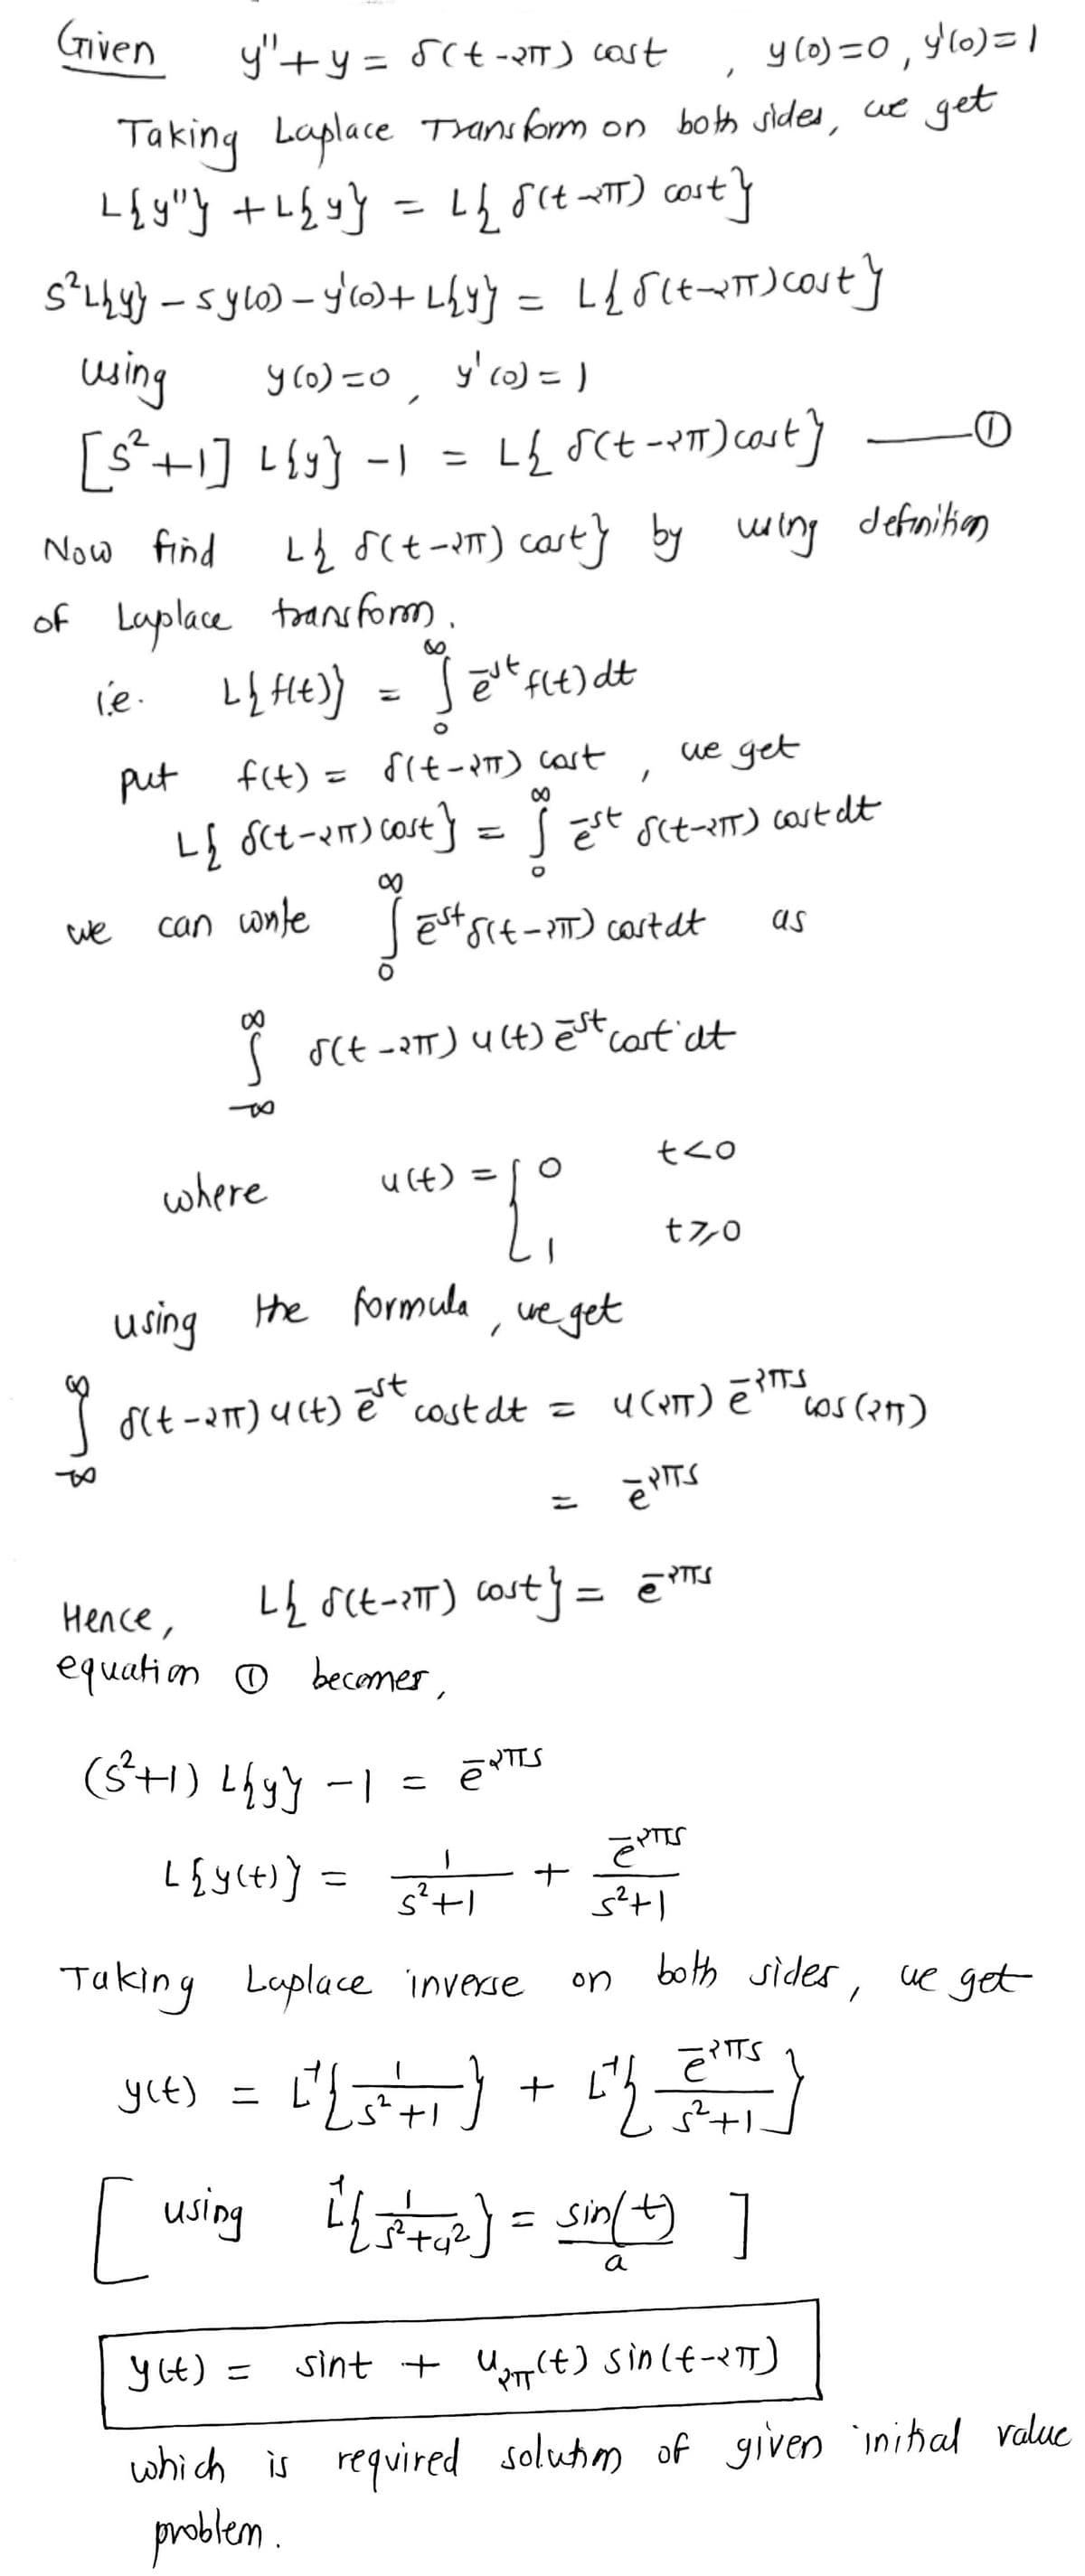 Given y''+y = δ(t-2π) cost , y(0)=0, y'(0)=1
Taking Laplace Transform on both sides, we get
L{y''} + L{y} = L{ δ(t-2π) cost}
s²L{y} - sy(0) - y'(0) + L{y} = L{ δ(t-2π)cost}
using y(0)=0, y'(0)=1
[s²+1] L{y} - 1 = L{ δ(t-2π)cost} ——①
Now find L{ δ(t-2π) cost} by using definition
of Laplace transform.
i.e. L{f(t)} = ∫₀^∞ e^{-st} f(t)dt
put f(t) = δ(t-2π) cost , we get
L{ δ(t-2π)cost} = ∫₀^∞ e^{-st} δ(t-2π) cost dt
we can write ∫₀^∞ e^{-st} δ(t-2π) cost dt as
∫_{-∞}^∞ δ(t-2π) u(t) e^{-st} cost dt
where u(t) = { 0 t<0
1 t≥0
using the formula, we get
∫_{-∞}^∞ δ(t-2π) u(t) e^{-st} cost dt = u(2π) e^{-2πs} cos(2π)
= e^{-2πs}
Hence, L{ δ(t-2π) cost} = e^{-2πs}
equation ① becomes,
(s²+1) L{y} - 1 = e^{-2πs}
L{y(t)} = 1/(s²+1) + e^{-2πs}/(s²+1)
Taking Laplace inverse on both sides, we get
y(t) = L⁻¹{1/(s²+1)} + L⁻¹{e^{-2πs}/(s²+1)}
[ using L⁻¹{1/(s²+a²)} = sin(t)/a ]
y(t) = sint + u_{2π}(t) sin(t-2π)
which is required solution of given initial value
problem.